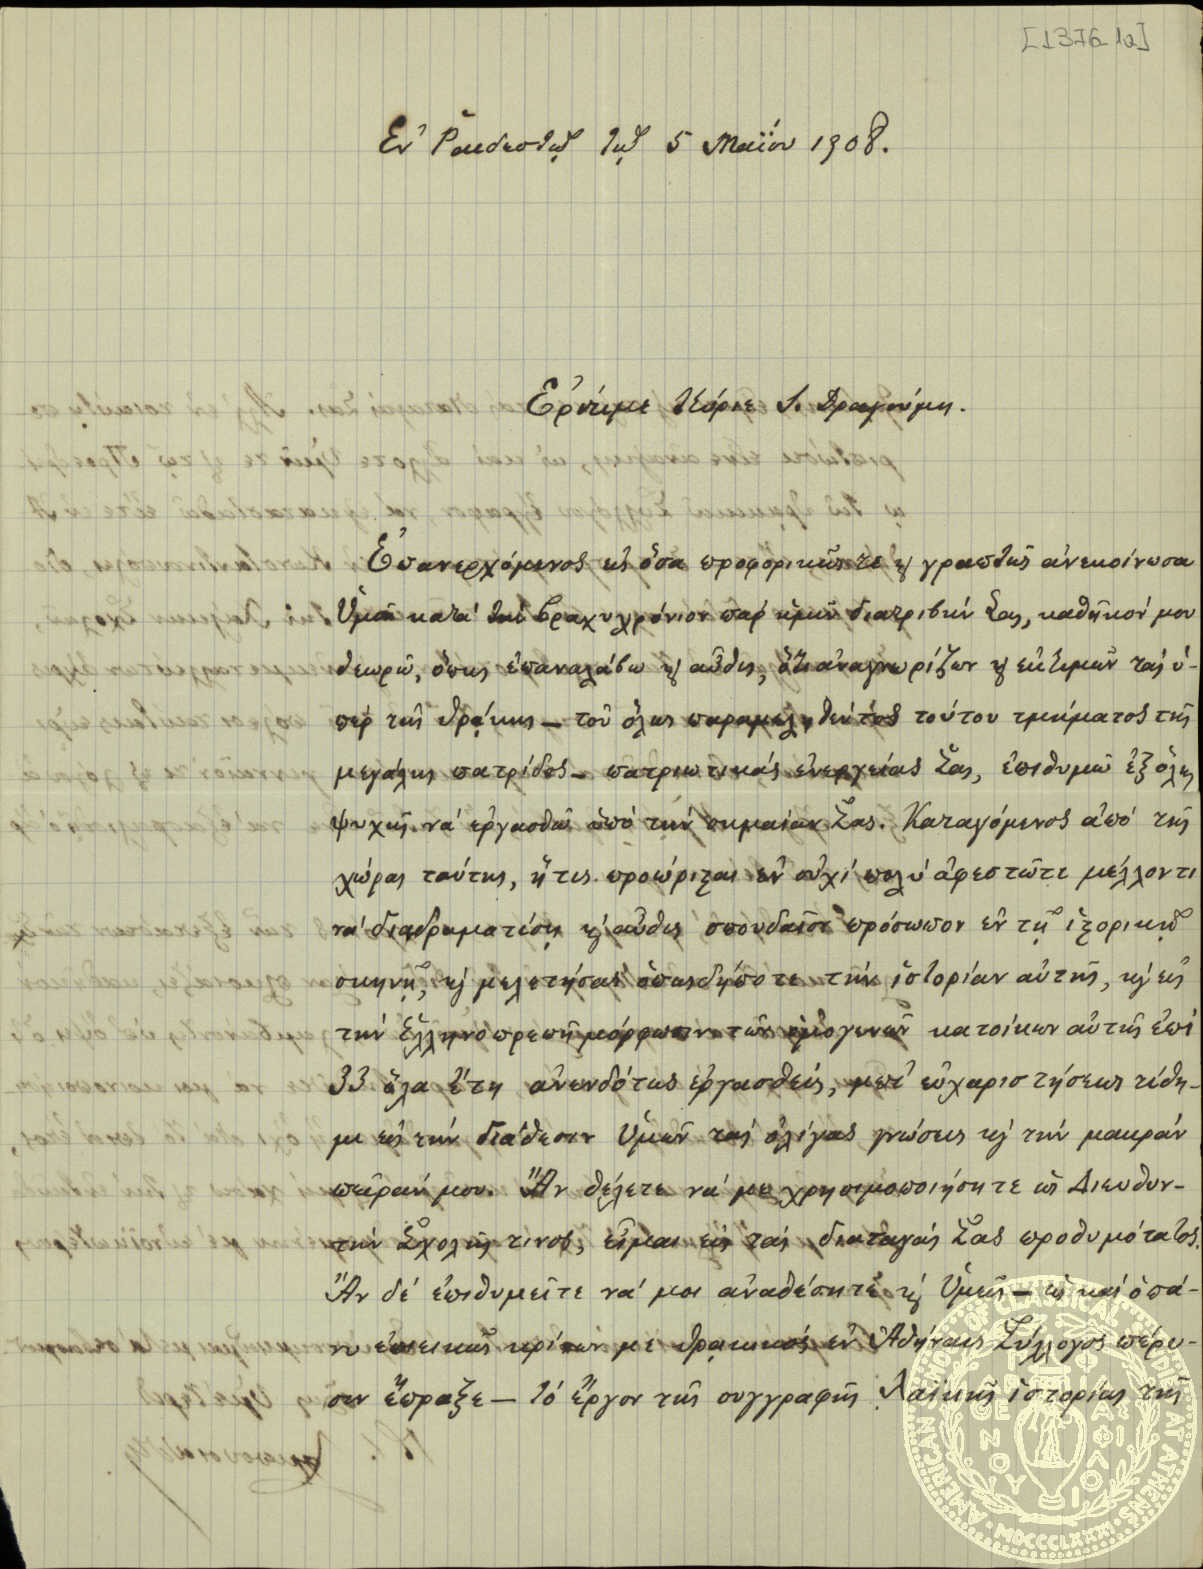 [1376-1α]
Ἐν Ῥαιδεστῷ τῇ 5 Μαΐου 1908.
Ἐρίτιμε Κύριε Ἰ. Δραγούμη.
Ἐπανερχόμενος εἰς ὅσα προφορικῶς τε κ̀ γραπτῶς ἀνεκοίνωσα
Ὑμῖν κατὰ τὴν βραχυχρόνιον παρ' ἡμῖν διατριβήν Σας, καθῆκόν μου
θεωρῶ, ὅπως ἐπαναλάβω κ̀ αὖθις, ὅτι ἀναγνωρίζων κ̀ ἐκτιμῶν τὰς ὑ-
πὲρ τῆς Θρᾴκης — τοῦ ὅλως παραμεληθέντος τούτου τμήματος τῆς
μεγάλης πατρίδος — πατριωτικὰς ἐνεργείας Σας, ἐπιθυμῶ ἐξ ὅλης
ψυχῆς νὰ ἐργασθῶ ὑπὸ τὴν σημαίαν Σας. Καταγόμενος ἀπὸ τῆς
χώρας ταύτης, ἥτις προώρισται ἐν οὐχὶ πολὺ ἀφεστῶτι μέλλοντι
νὰ διαδραματίσῃ κ̀ αὖθις σπουδαῖον πρόσωπον ἐν τῇ ἱστορικῇ
σκηνῇ, κ̀ μελετήσας ὁπωσδήποτε τὴν ἱστορίαν αὐτῆς, κ̀ εἰς
τὴν ἑλληνοπρεπῆ μόρφωσιν τῶν ὁμογενῶν κατοίκων αὐτῆς ἐπὶ
33 ὅλα ἔτη ἀνενδότως ἐργασθείς, μετ' εὐχαριστήσεως τίθη-
μι εἰς τὴν διάθεσιν Ὑμῶν τὰς ὀλίγας γνώσεις κ̀ τὴν μακρὰν
πεῖράν μου. Ἂν θέλετε νὰ με χρησιμοποιήσητε ὡς Διευθυν-
τὴν Σχολῆς τινος, εἶμαι εἰς τὰς διαταγάς Σας προθυμότατος.
Ἂν δὲ ἐπιθυμεῖτε νὰ μοι ἀναθέσητε κ̀ Ὑμεῖς — ὡς καὶ ὁ πά-
νυ ἐπιεικῶς κρίνων με Θρᾳκικὸς ἐν Ἀθήναις Σύλλογος πέρυ-
σιν ἔπραξε — τὸ ἔργον τῆς συγγραφῆς Λαϊκῆς ἱστορίας τῆς
AMERICAN SCHOOL OF CLASSICAL STUDIES AT ATHENS · MDCCCLXXXI